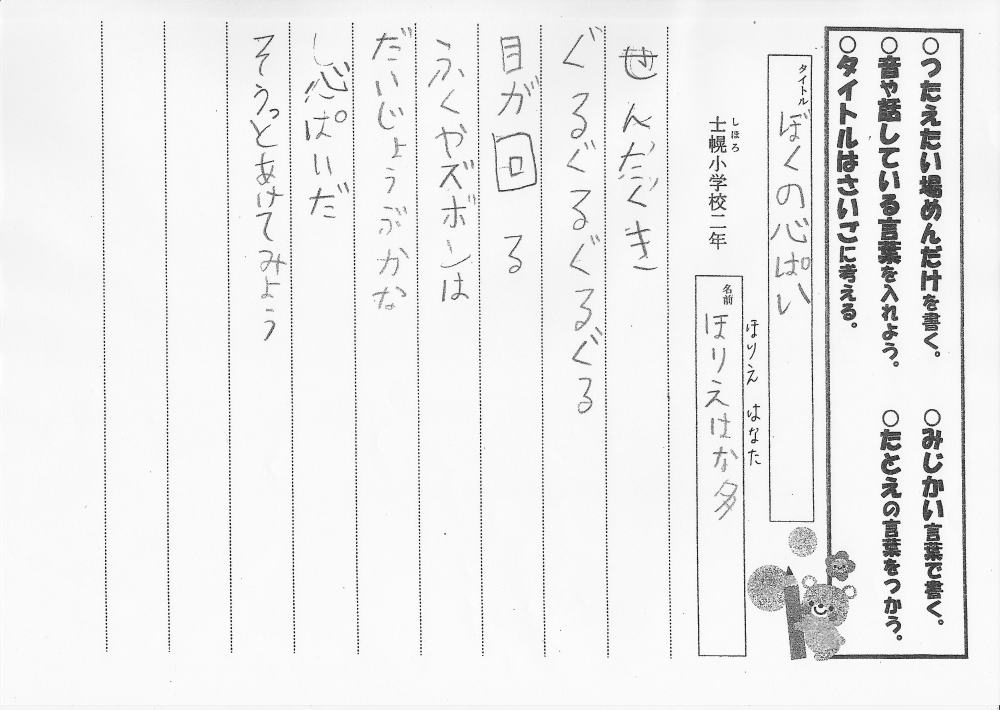 ○つたえたい場めんだけを書く。 ○みじかい言葉で書く。
○音や話している言葉を入れよう。 ○たとえの言葉をつかう。
○タイトルはさいごに考える。
タイトル ぼくの心ぱい
しほろ
士幌小学校二年
ほりえ はなた
名前 ほりえはな多
せんだくき
ぐるぐるぐるぐる
目が回る
ふくやズボンは
だいじょうぶかな
し心ぱいだ
そうっとあけてみよう